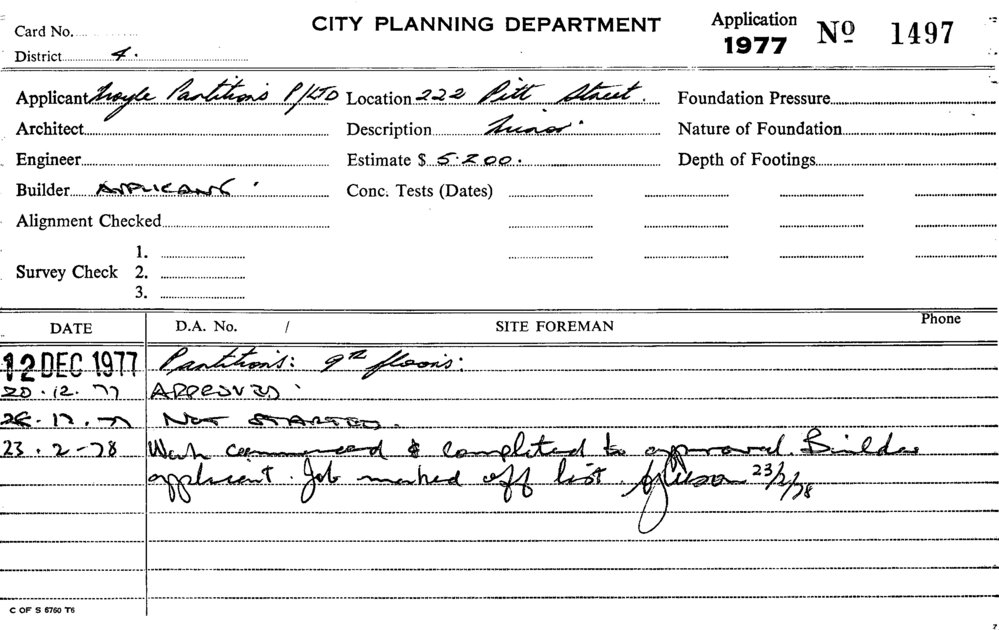 CITY PLANNING DEPARTMENT
Application
1977 No 1497
Card No.
District 4.
Applicant Partitions P/LTD Location 222 Pitt Street. Foundation Pressure
Architect Description Minor Nature of Foundation
Engineer Estimate $ 5.200. Depth of Footings
Builder APPLICANT Conc. Tests (Dates)
Alignment Checked
Survey Check 1.
2.
3.
DATE D.A. No. / SITE FOREMAN Phone
12 DEC 1977 Partitions: 9th floors:
20.12.77 APPROVED
.12.77 NOT STARTED.
23.2-78 Work commenced & completed to approval. Builder
applicant. Job marked off list. 23/2/78
C OF S 5760 T6